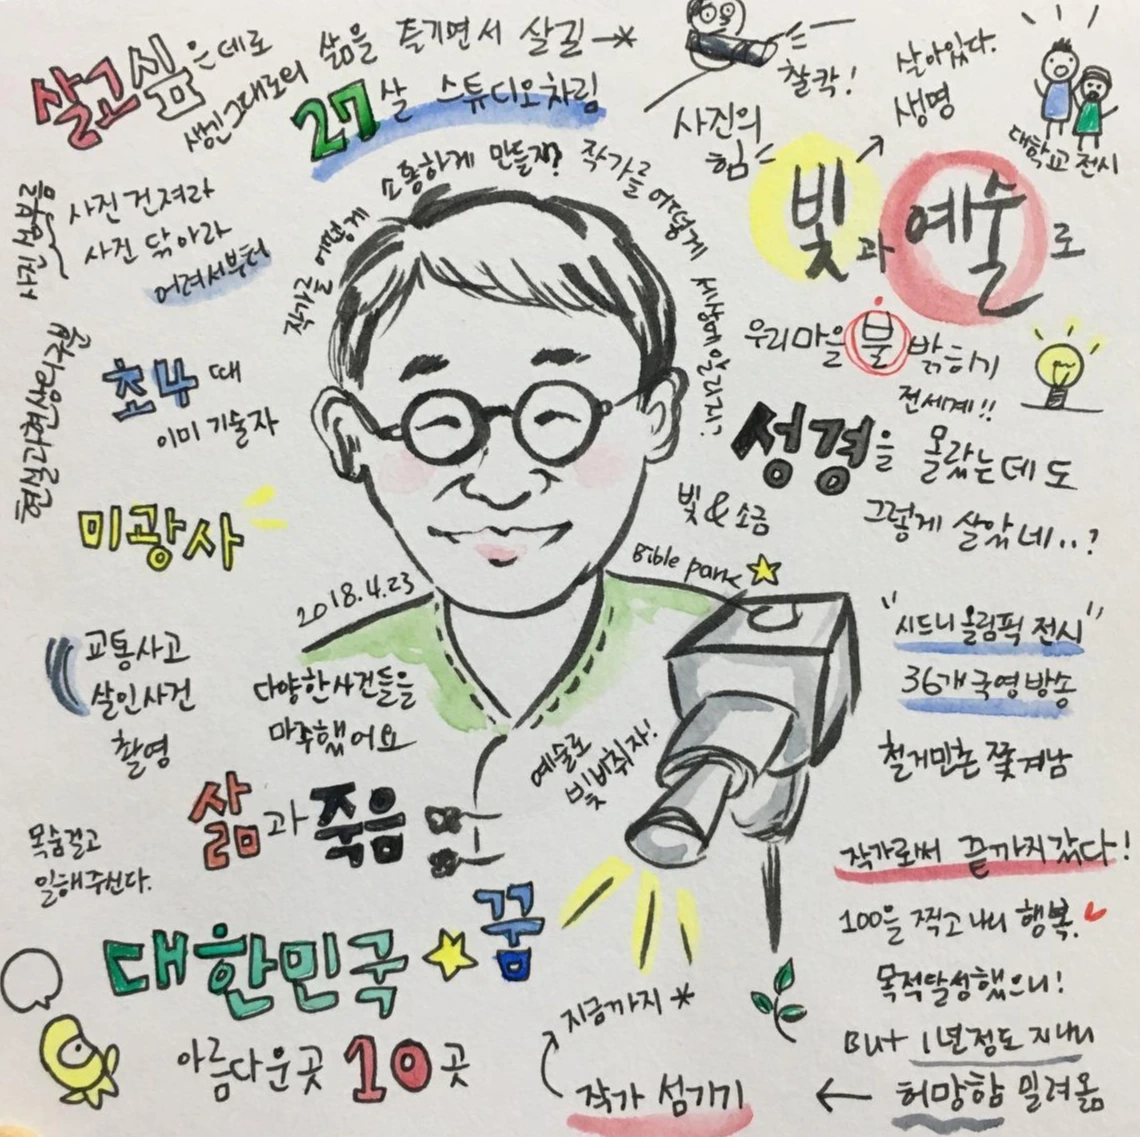 살고싶은데로
생긴그대로의 삶을 즐기면서 살길
27살 스튜디오차림
찰칵!
사진의
힘
살아있다.
생명
대학교 전시
빛과 예술로
우리마을 불 밝히기
전세계!!
성경을 몰랐는데도
그렇게 살았네..?
빛 & 소금
Bible park
사진 심부름
사진 건져라
사진 닦아라
어려서부터
작가를 어떻게 소통하게 만들지? 작가를 어떻게 세상에알리지?
현실과현상의구분
초4 때
이미 기술자
미광사
2018.4.23
교통사고
살인사건
촬영
다양한사건들을
마주했어요
예술로
빛비취자!
"시드니올림픽 전시"
36개국영방송
철거민촌 쫓겨남
삶과 죽음
목숨걸고
일해주신다.
작가로써 끝까지갔다!
100을 찍고 나니 행복.
목적달성했으니!
But 1년정도 지나니
허망함 밀려옴
대한민국 꿈
아름다운곳 10곳
지금까지
작가 섬기기